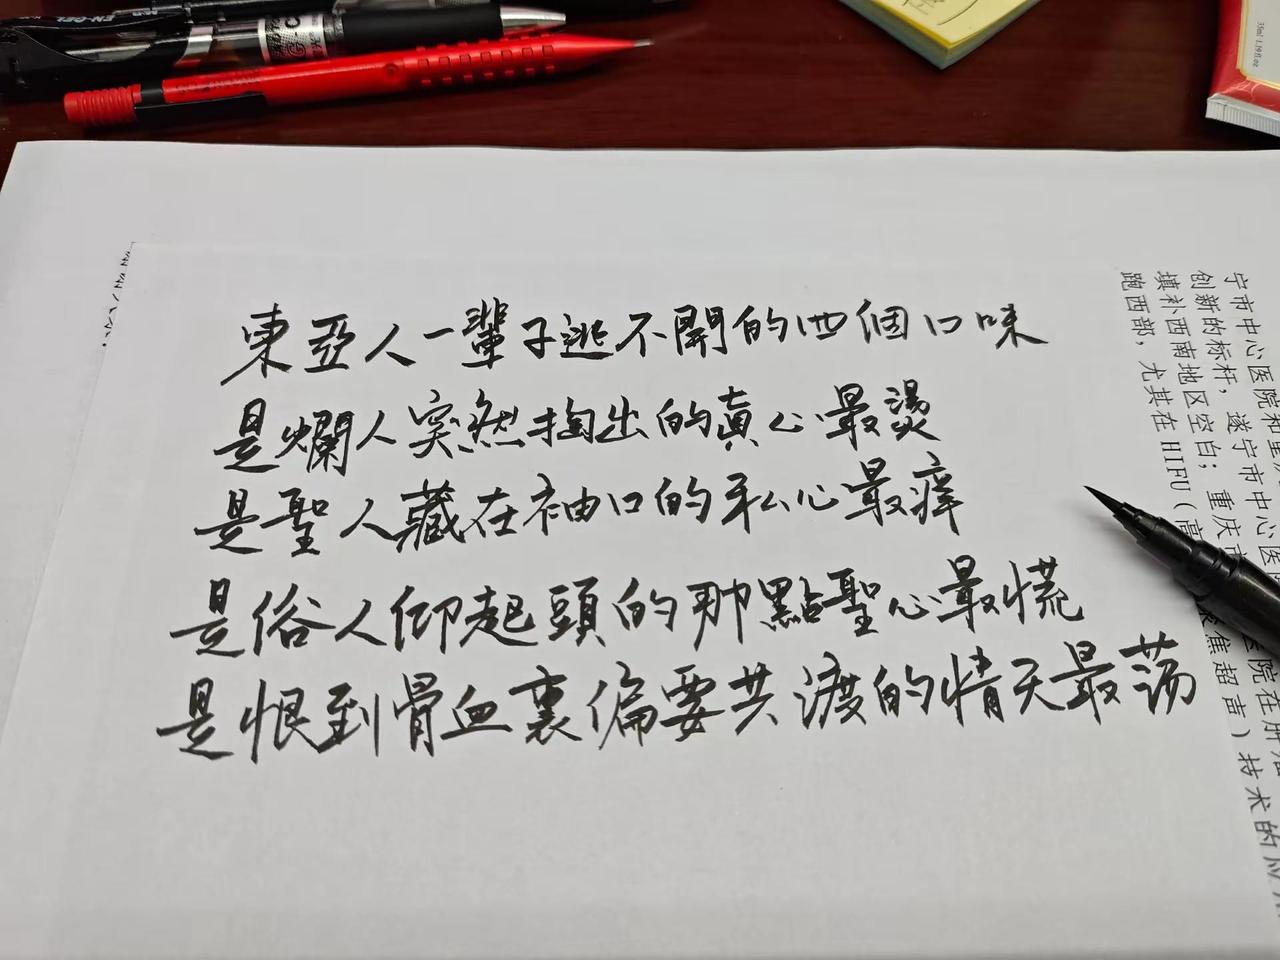 東亞人一輩子逃不開的四個口味
是爛人突然掏出的真心最燙
是聖人藏在袖口的私心最癢
是俗人仰起頭的那點聖心最慌
是恨到骨血裏偏要共渡的情天最荡
宁市中心医院和重
创新的标杆，遂宁市中心医
填补西南地区空白；重庆市
医院在肿
跑西部，尤其在HIFU（高
聚焦超声）技术的应
35ml 1.19fl.oz